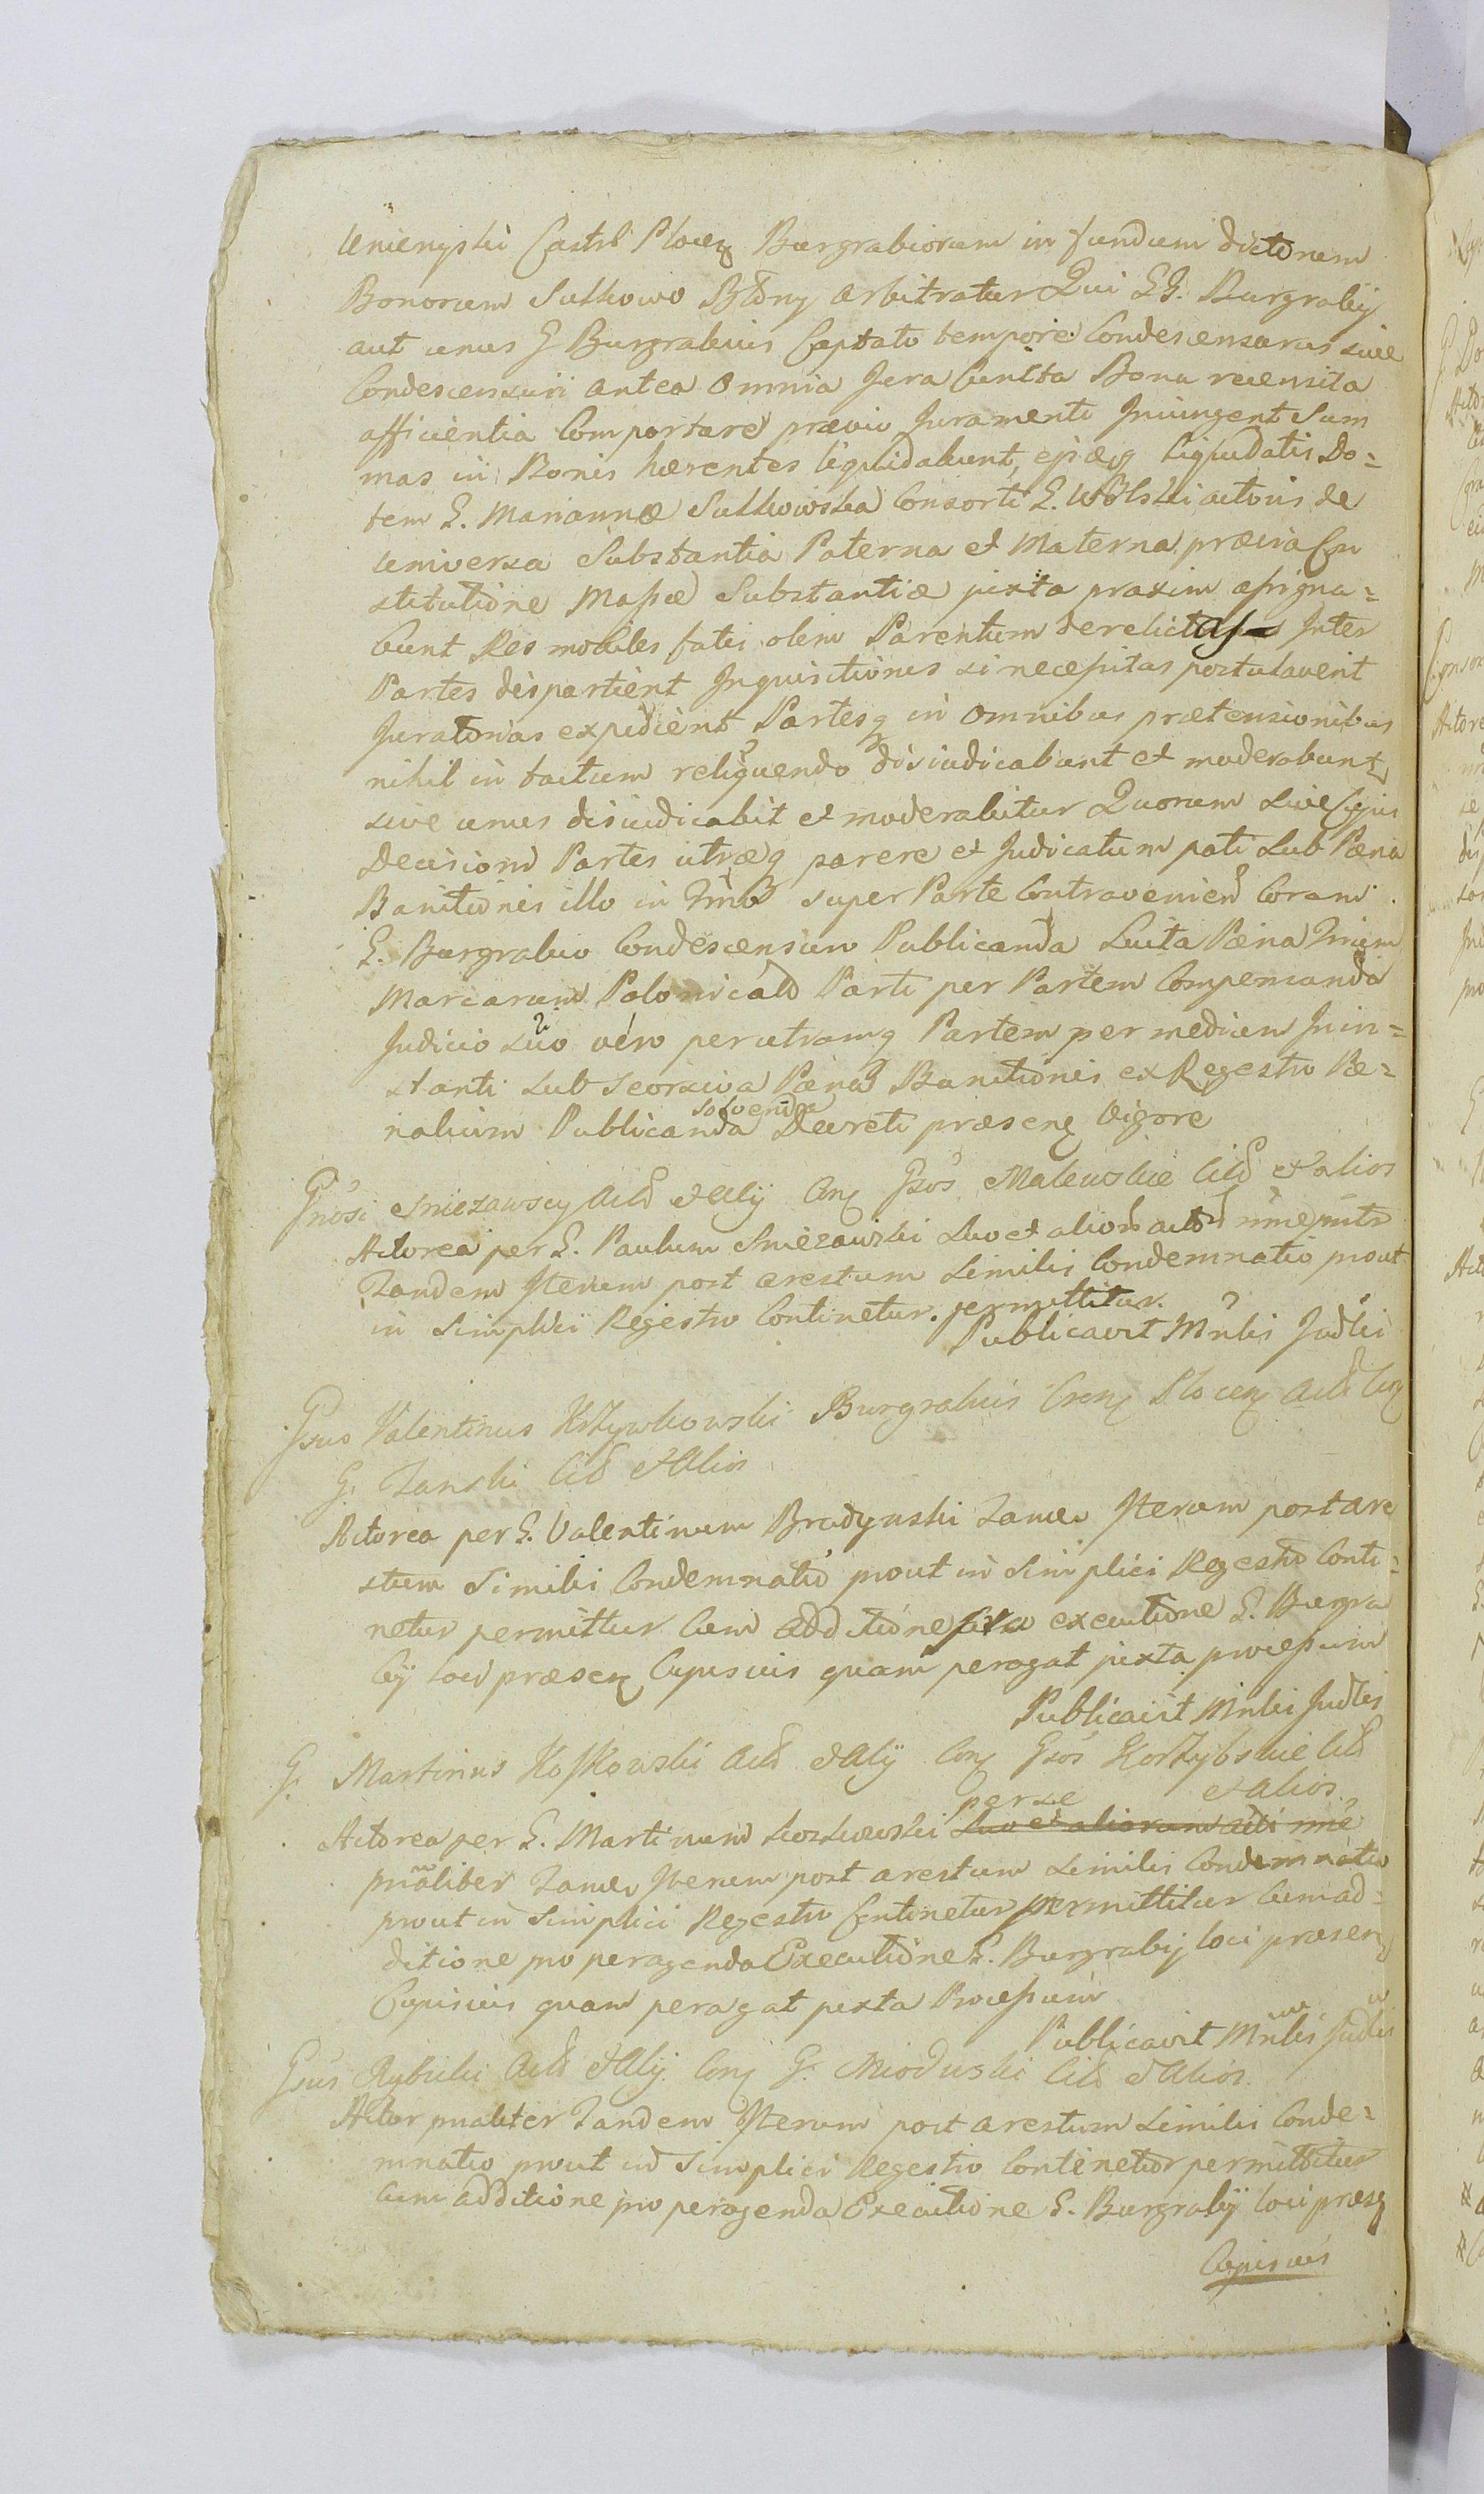 Unienyski Castr Plocen Burgrabiorum in fundum dictorum
Bonorum Sulkowo Arbitratur Qui GG. Burgrabij
aut unus G Burgrabius Captato tempore Condescensurus sive
Condescensuri antea omnia Jura Cuncta Bona recensita
afficientia Comportare prævio Juramento Iniungent Sum
mas in Bonis hærentes liquidabunt, liquidatis Do=
tem G. Mariannæ Sulkowska Consorti G. Wolski actoris de
Universa Substantia Paterna et Materna prævia Con
stitutione Massæ Substantiæ juxta praxim assigna=
bunt Res mobiles fatis olim Parentum derelictas Inter
Partes dispartient Inquisitiones si necessitas postulaverit
Juratorias expedient Partesq in omnibus prætensionibus
nihil in factum reliquendo diiudicabunt et moderabunt
sive unus diiudicabit et moderabitur Quorum sive Cujus
Decisioni Partes utræq parere et Judicatum pati sub Pæna
Banitionis illo in super Parte Contravenien Coram
G. Burgrabio Condescensuro Publicanda Luita Pæna
Marcarum Polonicald Parti per Partem Compensanda
Judicio suo vero per utramq Partem per medium In in=
stanti sub seorsiva Pæna Banitionis ex Regestro Pæ=
nalium Publicanda solvenda Decreti præsen Vigore
Gnosi Sniezawscy Actd et Alij Con Gsos Malewskie Citd et alios
Actorea per G. Paulum Sniezawski suo et aliord actd
Tandem Iterum post arestum similis Condemnatio prout
in Simplici Regestro Continetur. permittitur.
Publicavit Mnlis Judlis
Gsus Valentinus Krzywkowski Burgrabius Cren Plocen Actd Con
G. Zanski Citd et Alios
Actorea per G. Valentinum Bradynski Tamen Iterum post are
stum Similis Condemnatio prout in Simplici Regestro Conti=
netur permittur Cum additione pro executione G. Burgra
bij loci præsen Cujusvis quam peragat juxta processum
Publicavit Mnlis Judlis
G. Martinus Kosskowski Actd et Alij Con Gsos Korzybskie Citd
et alios
Actorea per G. Martinum Koskowski per se suo et aliorum
pnaliter Tamen Iterum post arestum similis Condemnatio
prout in Simplici Regestro Continetur permittitur Cum ad=
ditione pro peragenda Executione G. Burgrabij loci præsen
Cujusvis quam peragat juxta Processum
Publicavit Mnlis Judlis
Gsus Rybicki Actd et Alij Con G. Mioduski Citd et Alios.
Actor pnaliter Tandem Iterum post arestum similis Conde=
mnatio prout in Simplici Regestro Continetur permittitur
Cum additione pro peragenda Executione G. Burgrabij loci præsen
Cujusvis